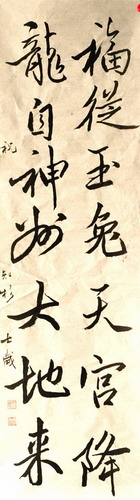 福從玉兔天宮降
龍自神州大地来